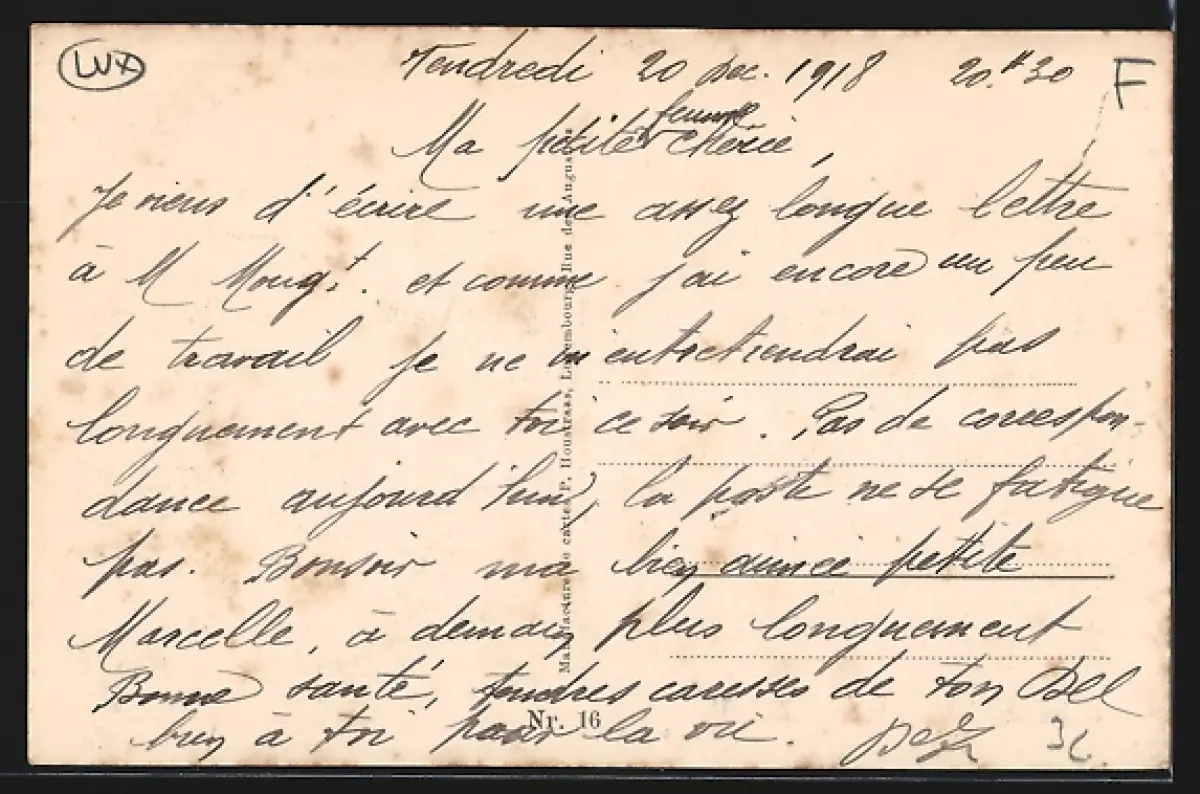 LUX
Vendredi 20 Dec. 1918 20.H30
F
Ma petite femme chérie,
Je viens d'écrire une assez longue lettre
à M Mougt. et comme j'ai encore un peu
de travail je ne m'entretiendrai pas
longuement avec toi ce soir. Pas de correspon-
dance aujourd'hui, la poste ne se fatigue
pas. Bonsoir ma bien aimée petite
Marcelle, à demain plus longuement
Bonne santé, tendres caresses de ton Del
bien à toi pour la vie.
Nr. 16
P. Houstraas, Luxembourg, Rue des Augus